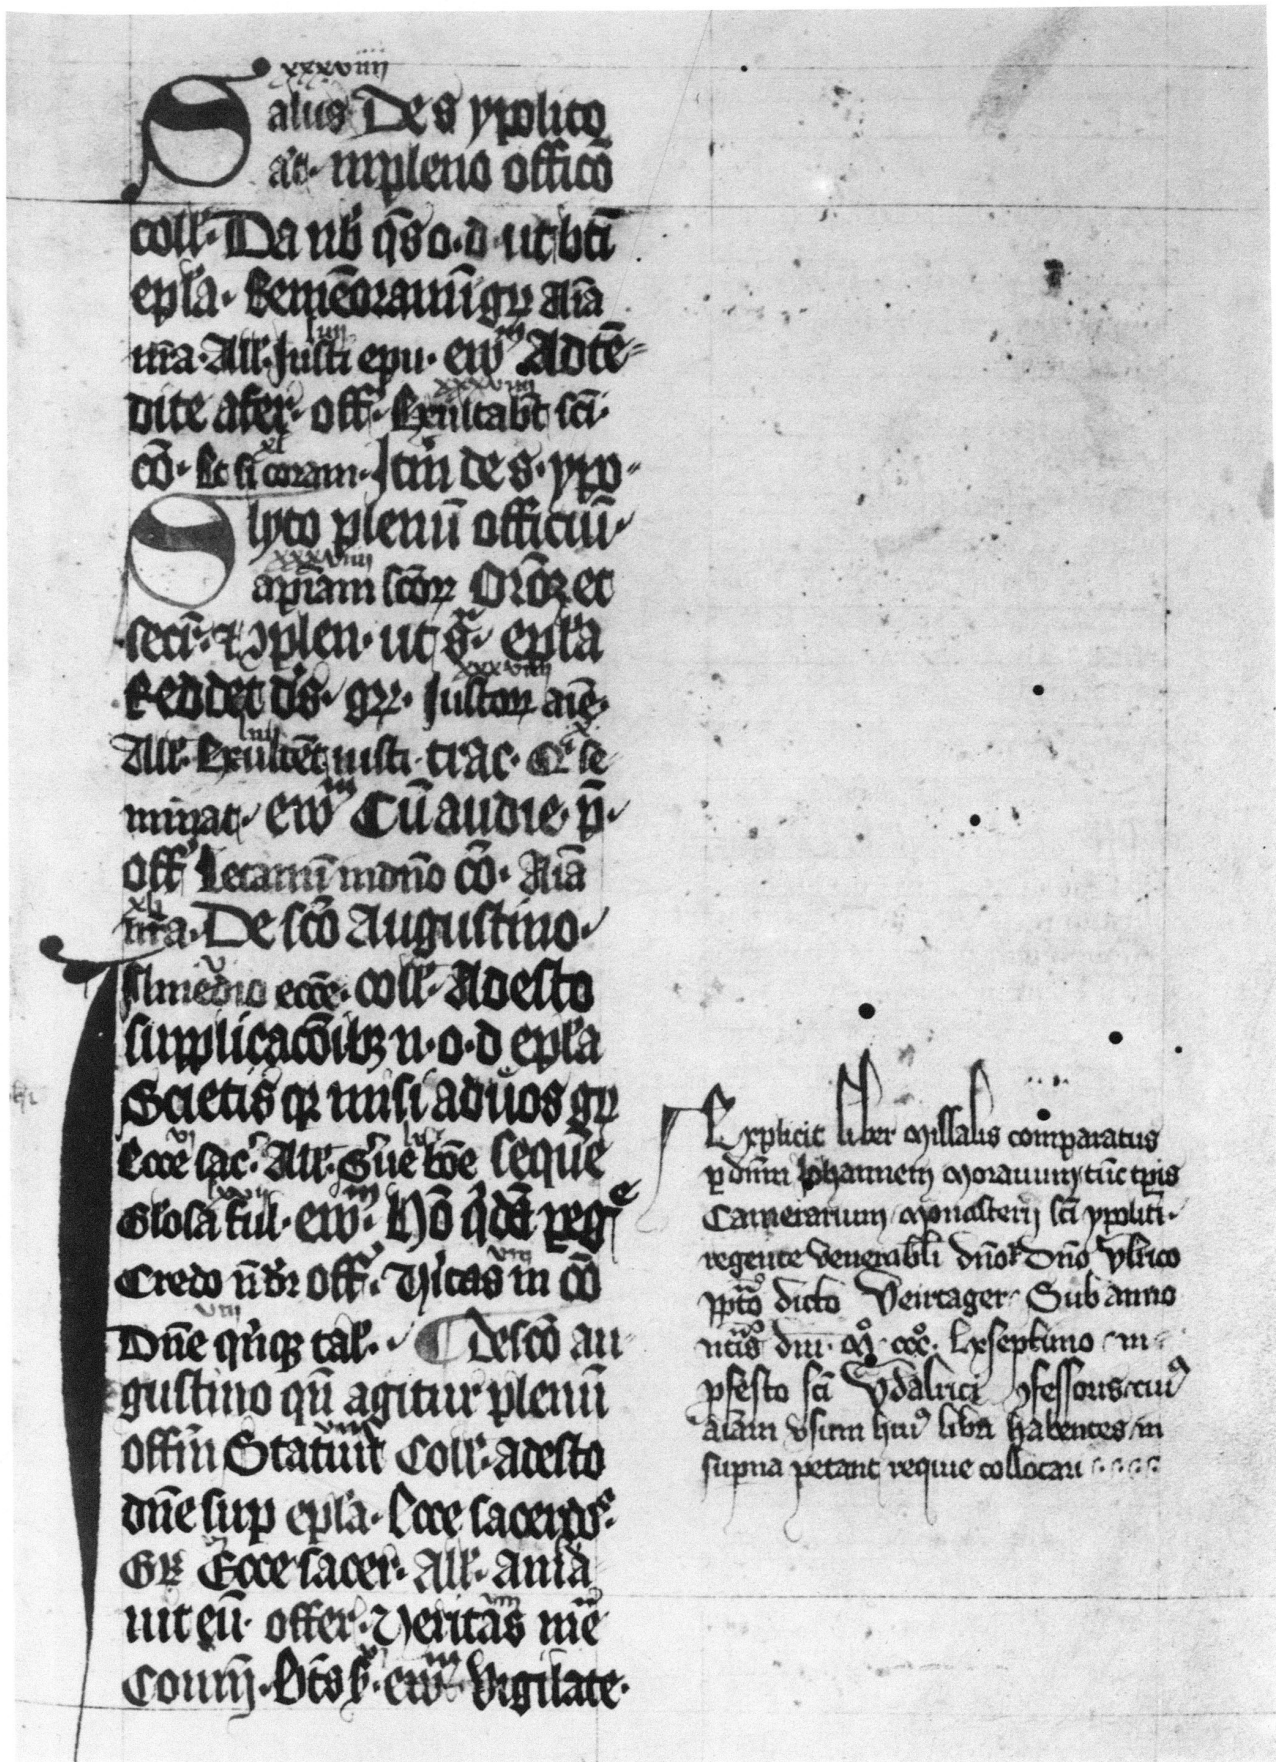 xxxviiii
Salus De S ypolito
ac inpleno officō
coll̄. Da nb̄ q̄s o. d. ut bt̄i
ep̄la. Rememoramī gr̄ Aīa
nr̄a. All̄. Justi epu. ew̄m Adtē=
dite afer. off̄. Exultabt̄ sc̄i.
cō. Et si coram. Itm̄ de S. ypo=
lyto plenū officiū.
xxxviiii
Sapīam sc̄oꝝ Orōꝫ et
secr̄. et ɔplen. ut s̄. ep̄la
Reddet d̄s. gr̄. Justoꝝ aīe.
All̄. Exultēt iusti. trac. Qi se
minat. ew̄m Cū audie. p̄.
off̄ Letamī indn̄o cō. Aīa
nr̄a. De sc̄o Augustino.
Inmedio ecc̄e. coll̄. Adesto
supplicacōibꝫ n. o. d ep̄la
Scietis qꝛ misi aduos gr̄
Ecce sac̄. All̄. Sūe bōe sequē
Glosa ful. ew̄m. Hō q̄dā pegᵉ
Credo n̄ dr̄ off̄. Vitas in cō
viii
Dn̄e qīqꝫ tal̄. ¶ De sc̄o au
gustino qn̄ agitur plenū
offm̄ Statuit Coll̄. adesto
dn̄e sup ep̄la. Ecce sacerdos.
Gr̄ Ecce sacer. All̄. ama
uit eū. offer. Veritas mē
Cōmuī. Bt̄s s̄. ew̄m. Vigilate.
Explicit liber Missalis comparatus
p dn̄m Johannem Morauum tūc tp̄is
Camerarium Monasterij sc̄i ypoliti.
regente venerabl̄i dn̄o Dn̄o Vlrico
pp̄to dicto Veirtager. Sub anno
nt̄is dn̄i. Mº. cccº. Lxseptimo in
pfesto sc̄i Vdalrici ɔfessoris cui9
aīam vsum hui9 libri habentes in
superna petant requie collocari